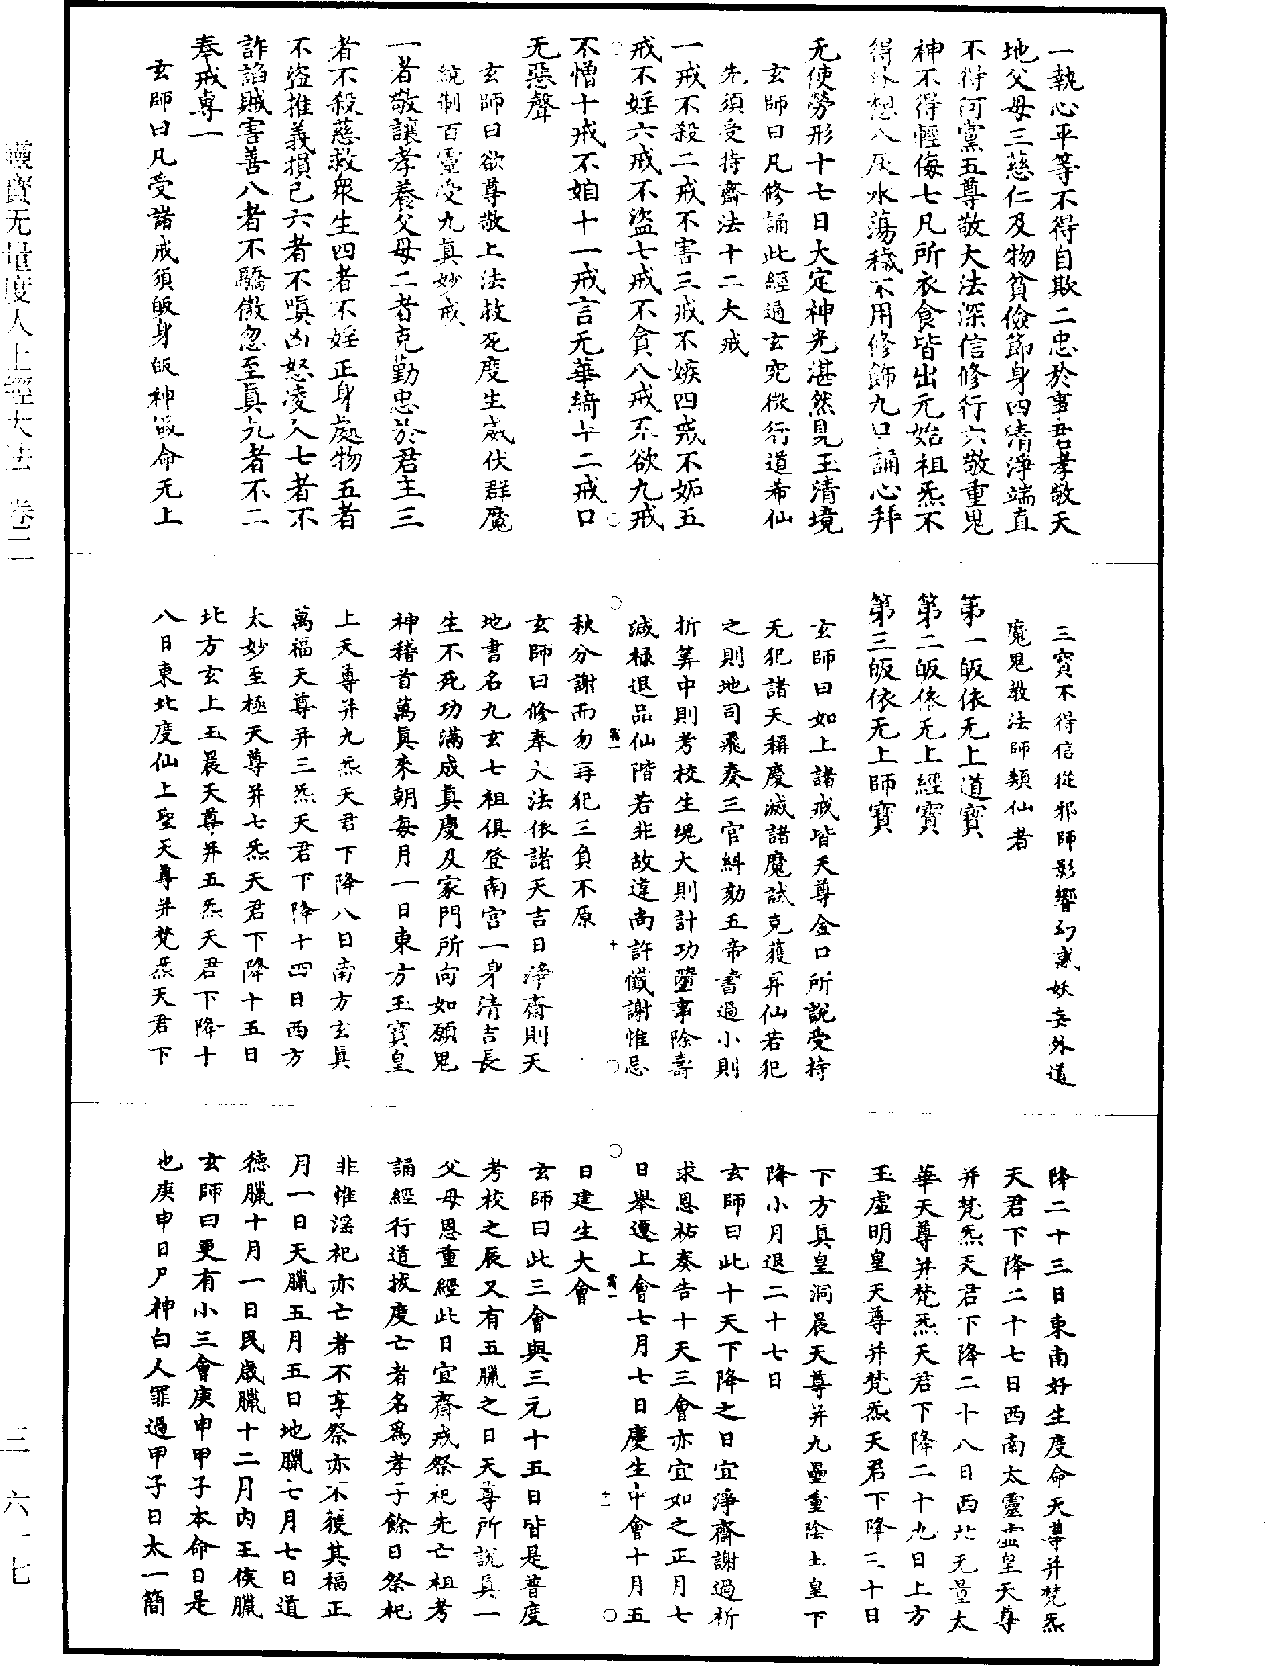 一執心平等不得自欺二忠於事君孝敬天
地父母三慈仁及物貧儉節身四清淨端直
不得阿黨五尊敬大法深信修行六敬重鬼
神不得輕侮七凡所衣食皆出元始祖炁不
得外想八灰水蕩穢不用修飾九口誦心拜
无使勞形十七日大定神光湛然見玉清境
玄師曰凡修誦此經通玄究微行道希仙
先須受持齋法十二大戒
一戒不殺二戒不害三戒不嫉四戒不妬五
戒不婬六戒不盜七戒不貪八戒不欲九戒
不憎十戒不𡛸十一戒言无華綺十二戒口
无惡聲
玄師曰欲尊敬上法救死度生威伏群魔
統制百靈受九真妙戒
一者敬讓孝養父母二者克勤忠於君主三
者不殺慈救眾生四者不婬正身處物五者
不盜推義損己六者不嗔凶怒凌人七者不
詐諂賊害善八者不驕傲忽至真九者不二
奉戒專一
玄師曰凡受諸戒須皈身皈神皈命无上
三寶不得信從邪師影響幻惑妖妄外道
魔鬼教法師類仙者
第一皈依无上道寶
第二皈依无上經寶
第三皈依无上師寶
玄師曰如上諸戒皆天尊金口所說受持
无犯諸天稱慶滅諸魔試克獲昇仙若犯
之則地司飛奏三官糾劾五帝書過小則
折筭中則考校生魂大則計功墮事除壽
減祿退品仙階若非故違尚許懺謝惟忌
秋分謝而勿再犯三負不原
玄師曰修奉大法依諸天吉日淨齋則天
地書名九玄七祖俱登南宮一身清吉長
生不死功滿成真慶及家門所向如願鬼
神稽首萬真來朝每月一日東方玉寶皇
上天尊并九炁天君下降八日南方玄真
萬福天尊并三炁天君下降十四日西方
太妙至極天尊并七炁天君下降十五日
北方玄上玉晨天尊并五炁天君下降十
八日東北度仙上聖天尊并梵炁天君下
降二十三日東南好生度命天尊并梵炁
天君下降二十七日西南太靈虛皇天尊
并梵炁天君下降二十八日西北无量太
華天尊并梵炁天君下降二十九日上方
玉虛明皇天尊并梵炁天君下降三十日
下方真皇洞晨天尊并九壘重陰土皇下
降小月退二十七日
玄師曰此十天下降之日宜淨齋謝過祈
求恩祐奏告十天三會亦宜如之正月七
日舉遷上會七月七日慶生中會十月五
日建生大會
玄師曰此三會與三元十五日皆是普度
考校之辰又有五臘之日天尊所說真一
父母恩重經此日宜齋戒祭祀先亡祖考
誦經行道拔度亡者名為孝子餘日祭祀
非惟淫祀亦亡者不享祭亦不獲其福正
月一日天臘五月五日地臘七月七日道
德臘十月一日民歲臘十二月內王侯臘
玄師曰更有小三會庚申甲子本命日是
也庚申日尸神白人罪過甲子日太一簡
靈寶无量度人上經大法 卷三
三 六一七